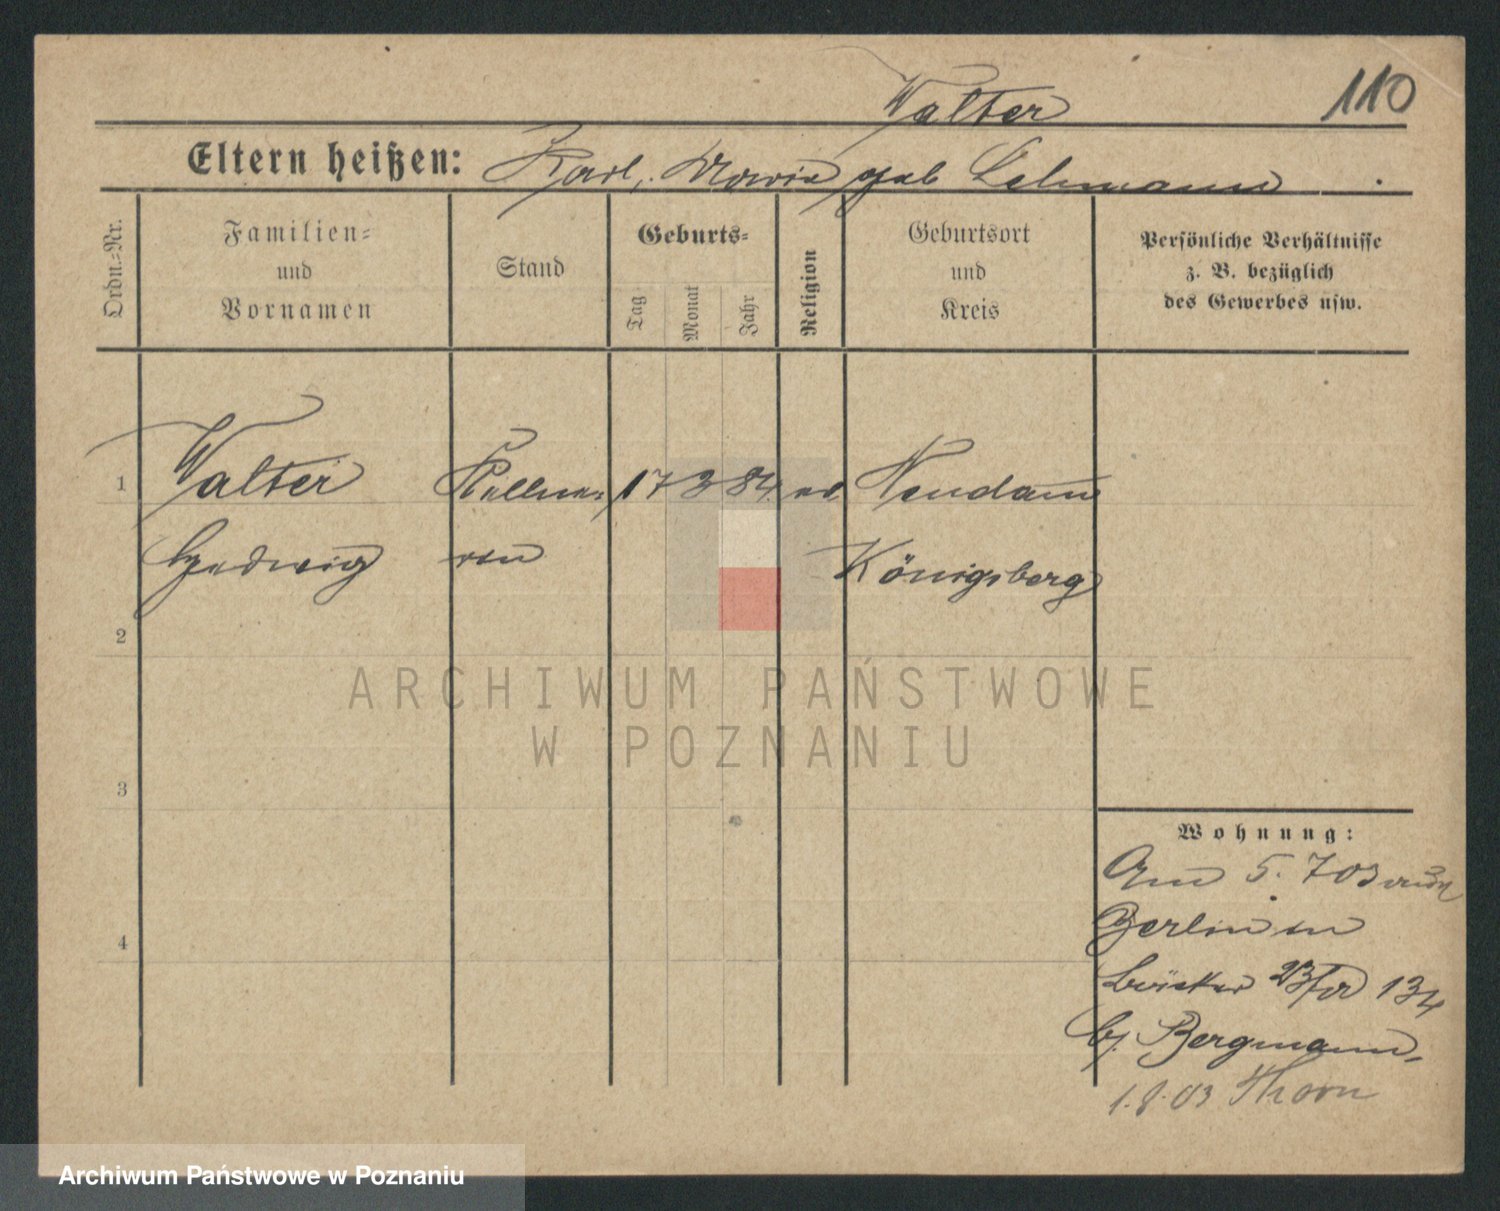 Walter 110
Eltern heißen: Karl, Marie geb Lehmann
Ordn.-Nr.
Familien-
und
Vornamen
Stand
Geburts-
Tag
Monat
Jahr
Religion
Geburtsort
und
Kreis
Persönliche Verhältnisse
z. B. bezüglich
des Gewerbes usw.
1 Walter Kellne- 17 3 84 ev Neudamm
Hedwig rin Königsberg
2
ARCHIWUM PAŃSTWOWE
W POZNANIU
3
Wohnung:
Am 5. 7 03 aus
Berlin in
4
134
bj. Bergmann,
1.8.03 Thorn
Archiwum Państwowe w Poznaniu